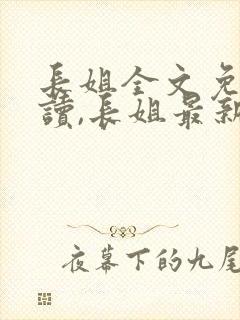 長姐全文免
讀,長姐最新
夜幕下的九尾